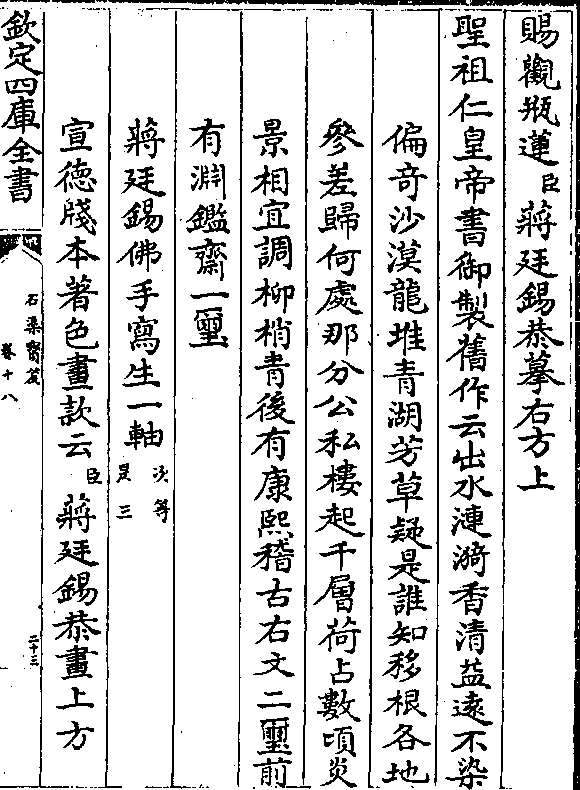 賜觀瓶蓮臣蔣廷錫恭摹右方上
聖祖仁皇帝書御製舊作云出水漣漪香清益遠不染
偏竒沙漠龍堆青湖芳草疑是誰知移根各地
參差歸何處那分公私樓起千層荷占數頃炎
景相宜調柳梢青後有康熙稽古右文二璽前
有淵鑑齋一璽
蔣廷錫佛手寫生一軸次等昃三
宣德牋本著色畫款云臣蔣廷錫恭畫上方
欽定四庫全書
石渠寳笈
卷十八
二十三